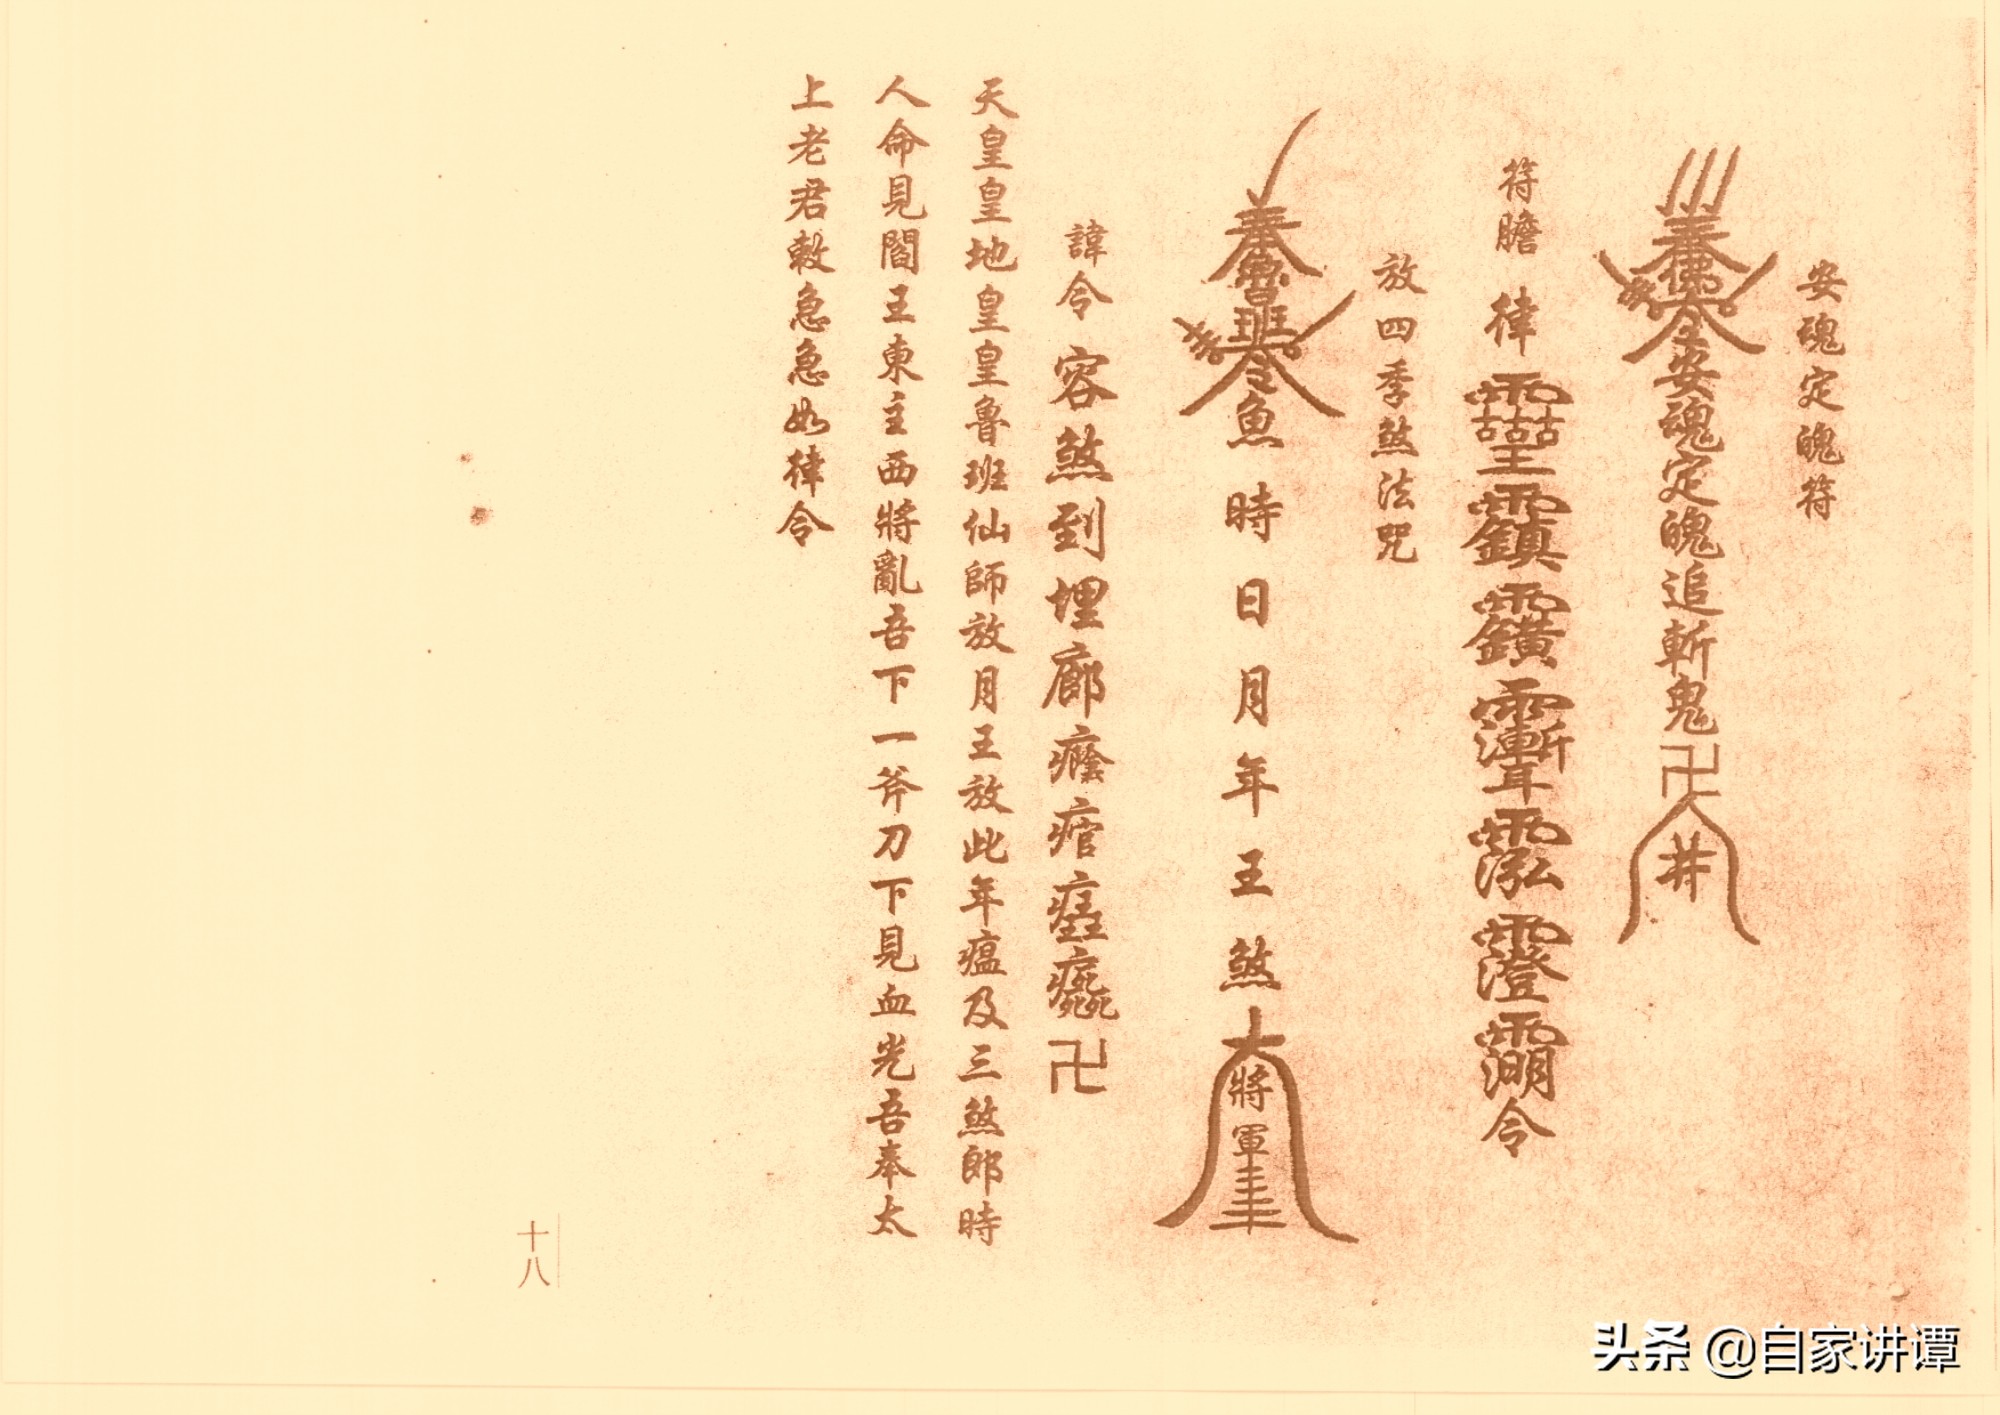 安魂定魄符
奉佛令安魂定魄追斬鬼卍井
符膽 律 令
放四季煞法咒
奉魯班令魚時日月年王煞大將軍
諱令 容煞到埋廊 卍
天皇皇地皇皇魯班仙師放月王放此年瘟及三煞郎時
人命見閻王東主西將亂吾下一斧刀下見血光吾奉太
上老君敕急急如律令
十八
头条 @自家讲谭